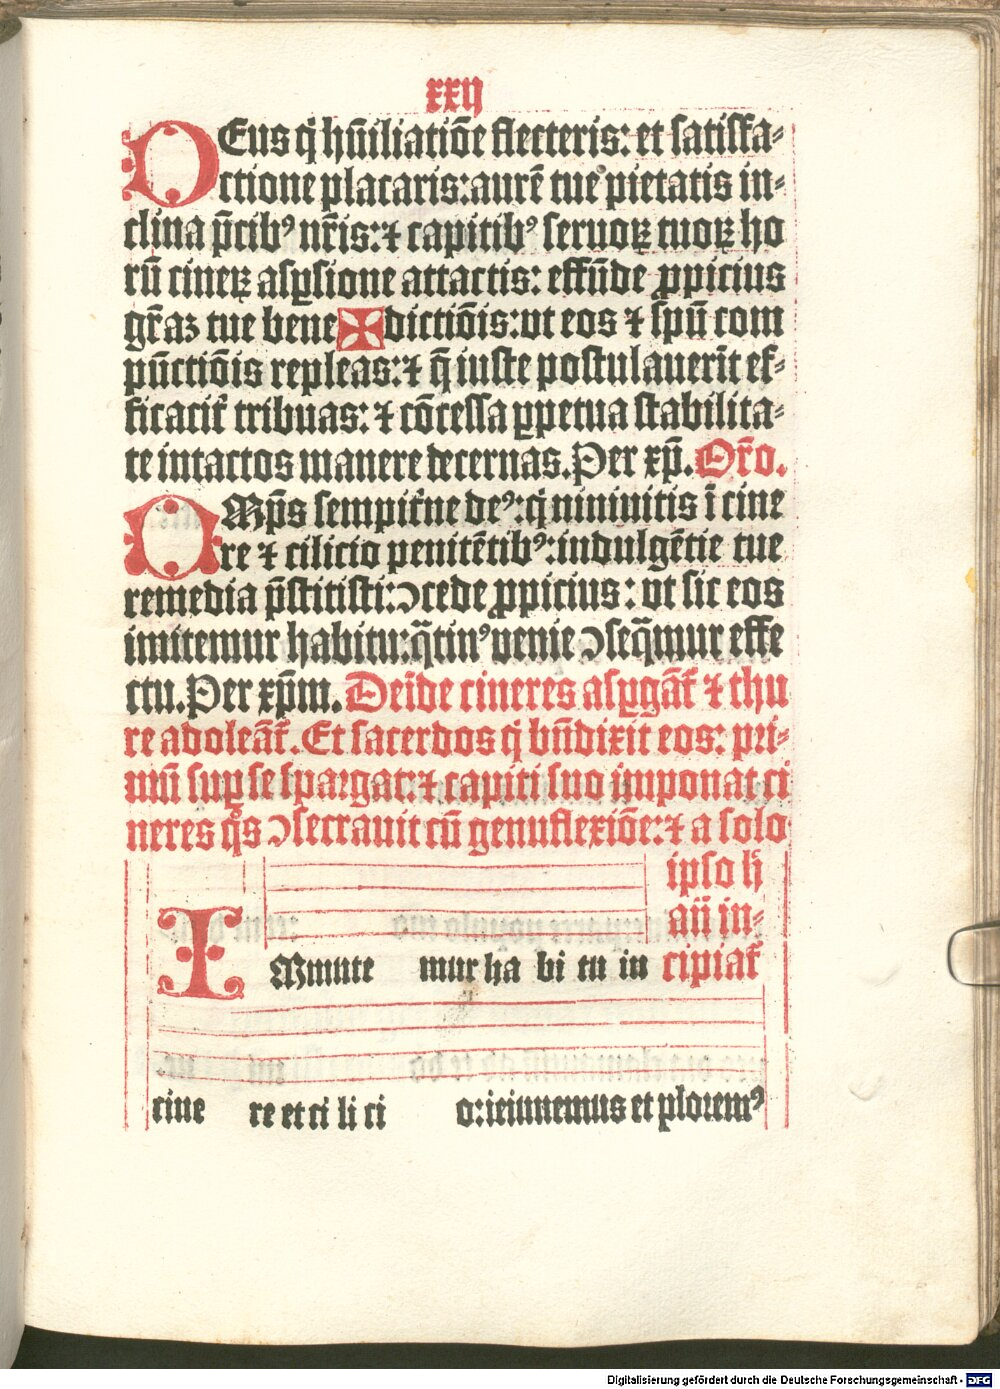 xxij
DEus q̄ hūiliatiōe flecteris: et satisfa⸗
ctione placaris: aurē tue pietatis in⸗
clina p̄cibꝰ nr̄is: ⁊ capitibꝰ seruoꝝ tuoꝝ ho
rū cineꝝ aspsione attactis: effūde ꝓpicius
gr̄aꝫ tue bene✠dictiōis: vt eos ⁊ sp̄u com
pūctiōis repleas: ⁊ q̄ iuste postulauerīt ef⸗
ficacit̄ tribuas: ⁊ cōcessa ꝑpetua stabilita⸗
te intactos manere decernas. Per xp̄. Or̄o.
OMp̄s sempit̄ne deꝰ: q̄ nininitis ī cine
re ⁊ cilicio penitētibꝰ: indulgētie tue
remedia p̄stitisti: ↄcede ꝓpicius: vt sic eos
imitemur habitu: q̄tinꝰ venie ↄseq̄mur effe
ctu. Per xp̄m. Deīde cineres aspgāt̄ ⁊ thu
re adoleāt̄. Et sacerdos q̄ bn̄dixit eos: pri⸗
mū suꝑ se spargat: ⁊ capiti suo imponat ci
neres q̊s ↄsecrauit cū genuflexiōe: ⁊ a solo
ipso h̄
aīi in⸗
IMmute mur ha bi tu in cipiat̄
cine re et ci li ci o: ieiunemus et ploremꝰ
Digitalisierung gefördert durch die Deutsche Forschungsgemeinschaft - DFG